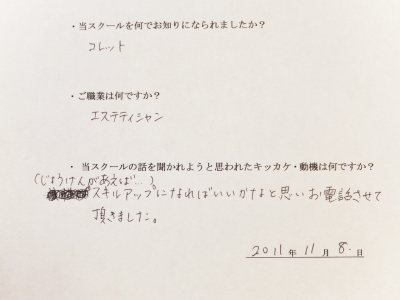 ・当スクールを何でお知りになられましたか？
コレット
・ご職業は何ですか？
エステティシャン
・ 当スクールの話を聞かれようと思われたキッカケ・動機は何ですか？
(じょうけんがあえば…)。
スキルアップになればいいかなと思いお電話させて
頂きました。
2011年 11月 8日